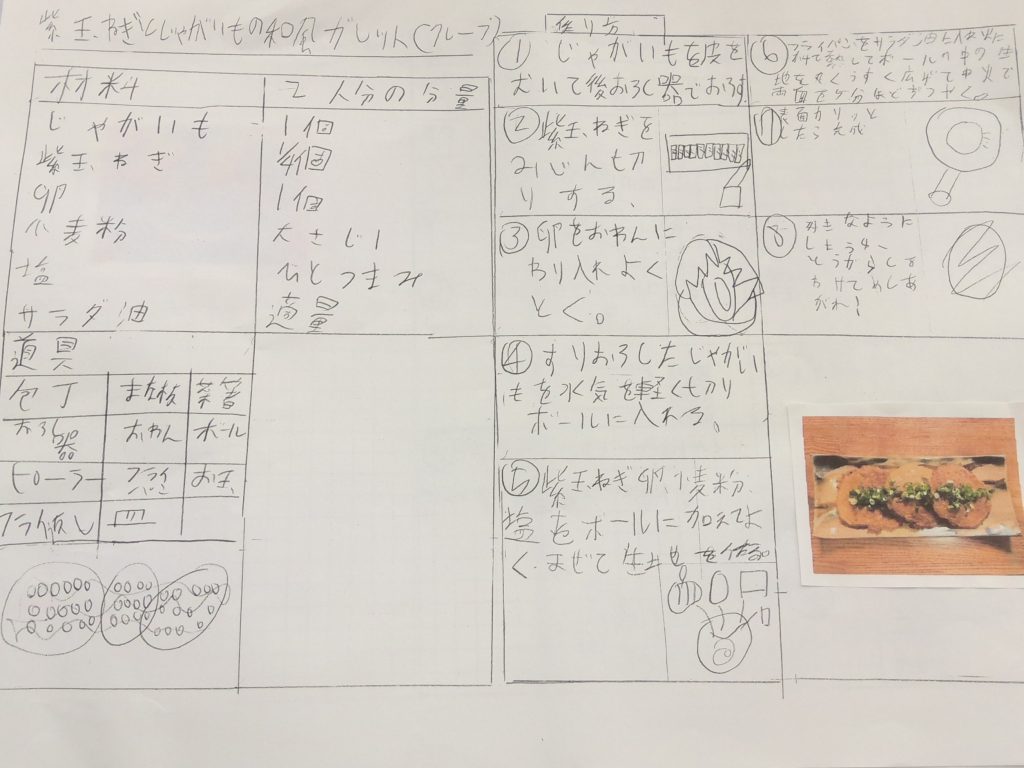 紫玉ねぎとじゃがいもの和風ガレット(クレープ)
材料
2人分の分量
じゃがいも
1個
紫玉ねぎ
1/4個
卵
1個
小麦粉
大さじ1
塩
ひとつまみ
サラダ油
適量
道具
包丁
まな板
菜箸
おろし器
おわん
ボール
ピーラー
フライパン
お玉
フライ返し
皿
作り方
① じゃがいもを皮を
むいて後おろし器でおろす
② 紫玉ねぎを
みじん切
りする、
③ 卵をおわんに
わり入れよく
とぐ。
④ すりおろしたじゃがい
もを水気を軽く切り
ボールに入れる。
⑤ 紫玉ねぎ卵、小麦粉、
塩をボールに加えてよ
く、まぜて生地を作る。
⑥ フライパンをサラダ油を入れ火に
熱してボールの中の生
地を丸くうすく広げて中火で
両面を5分ほどずつやく。
⑦ 表面カリッと
したら完成
⑧ 好きなように
しょうゆ、
とうがらしを
かけてめしあ
がれ!